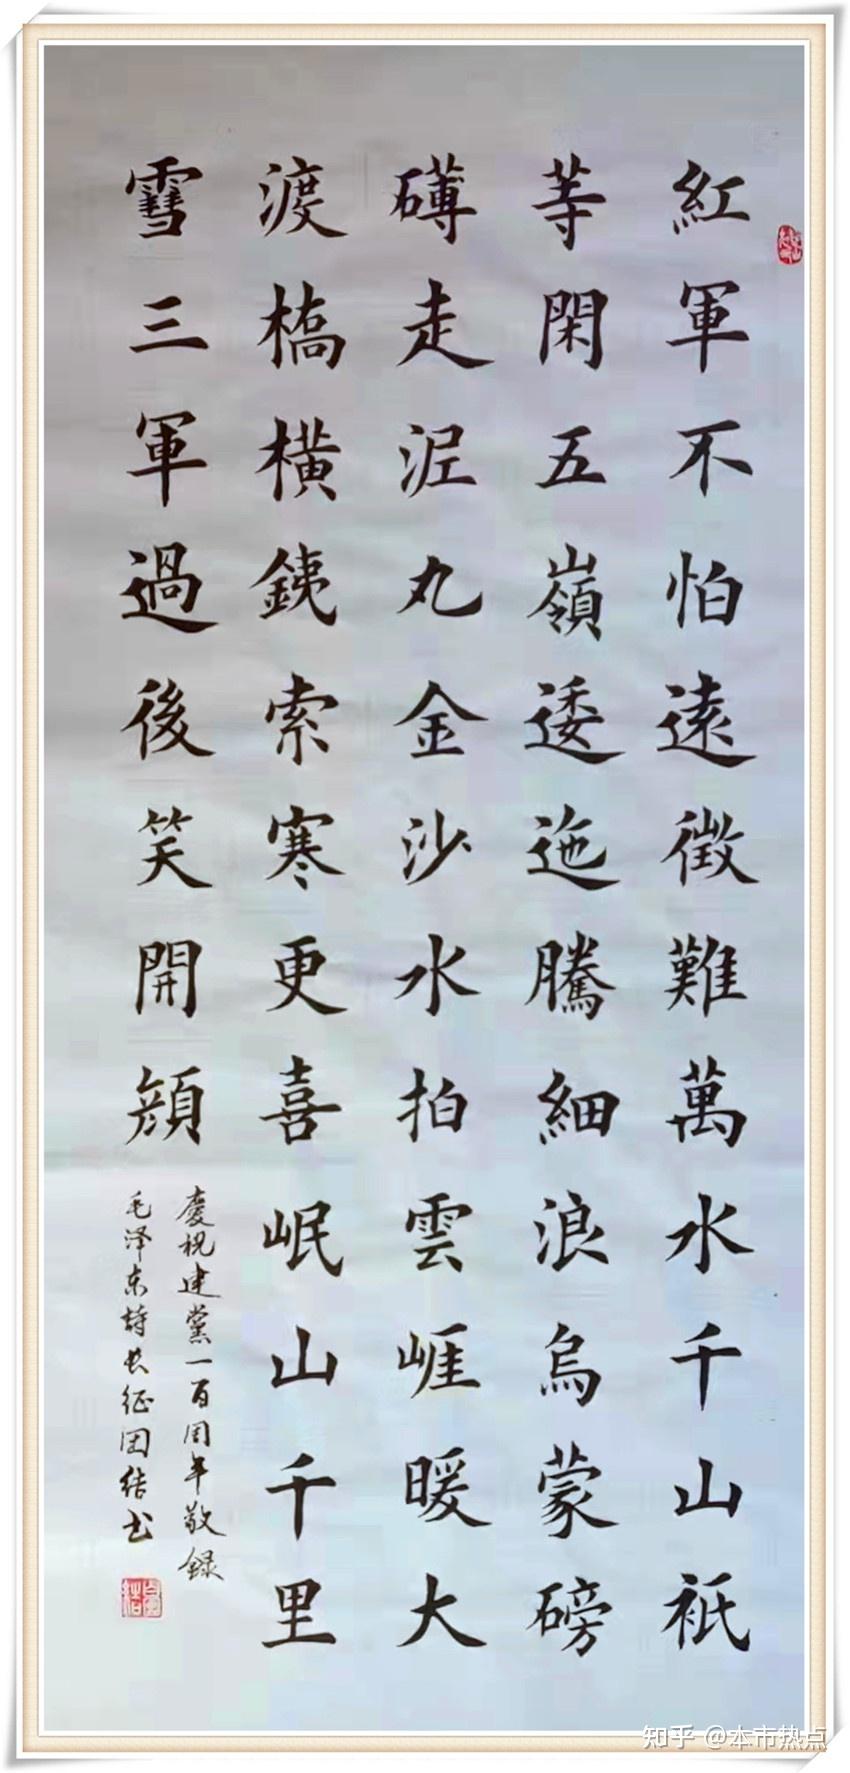 紅軍不怕遠徵難萬水千山祇
等閑五嶺逶迤騰細浪烏蒙磅
礴走泥丸金沙水拍雲崕暖大
渡橋橫銕索寒更喜岷山千里
雪三軍過後笑開顔
慶祝建黨一百周年敬録
毛泽东詩长征团结书
知乎 @本市热点